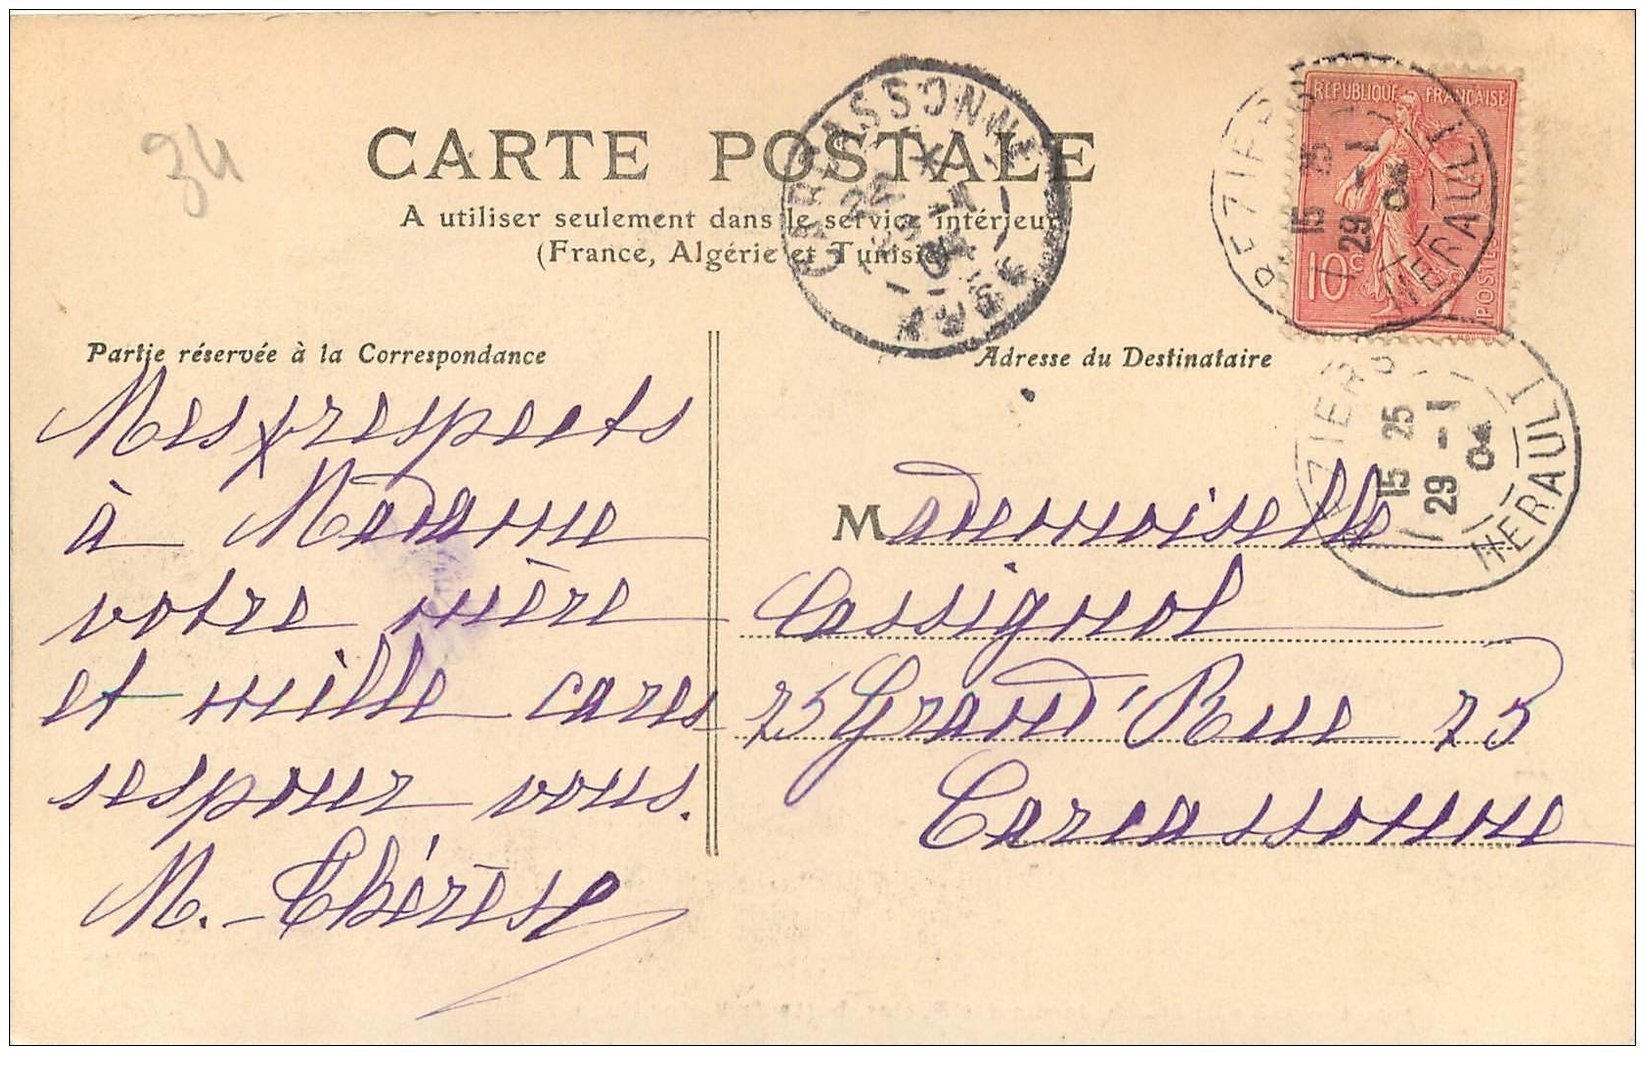 34
CARTE POSTALE
A utiliser seulement dans le service intérieur
(France, Algérie et Tunisie)
CARCASSONNE
AUDE
REPUBLIQUE FRANÇAISE
10c
POSTES
BEZIERS
15 25
29 -1
04
HERAULT
BEZIERS
15 25
29 -1
04
HERAULT
Partie réservée à la Correspondance
Mes respects
à Madame
votre mère
et mille cares
ses pour vous.
M. - Thérèse
Adresse du Destinataire
Mademoiselle
Cassignol
75 Grand'Rue 75
Carcassonne